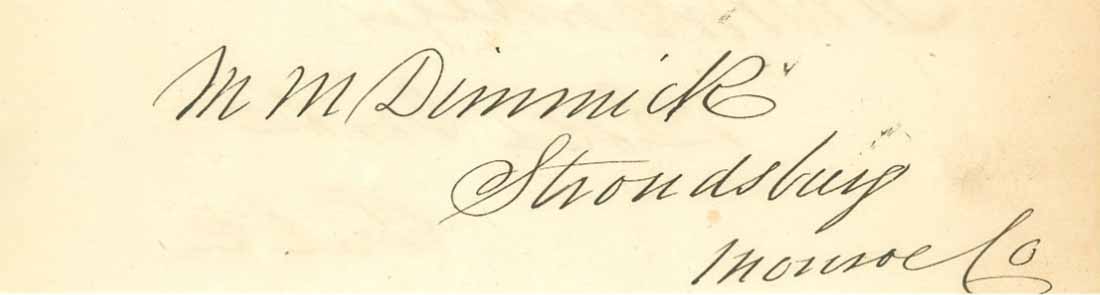 M M Dimmick
Stroudsburg
Monroe Co